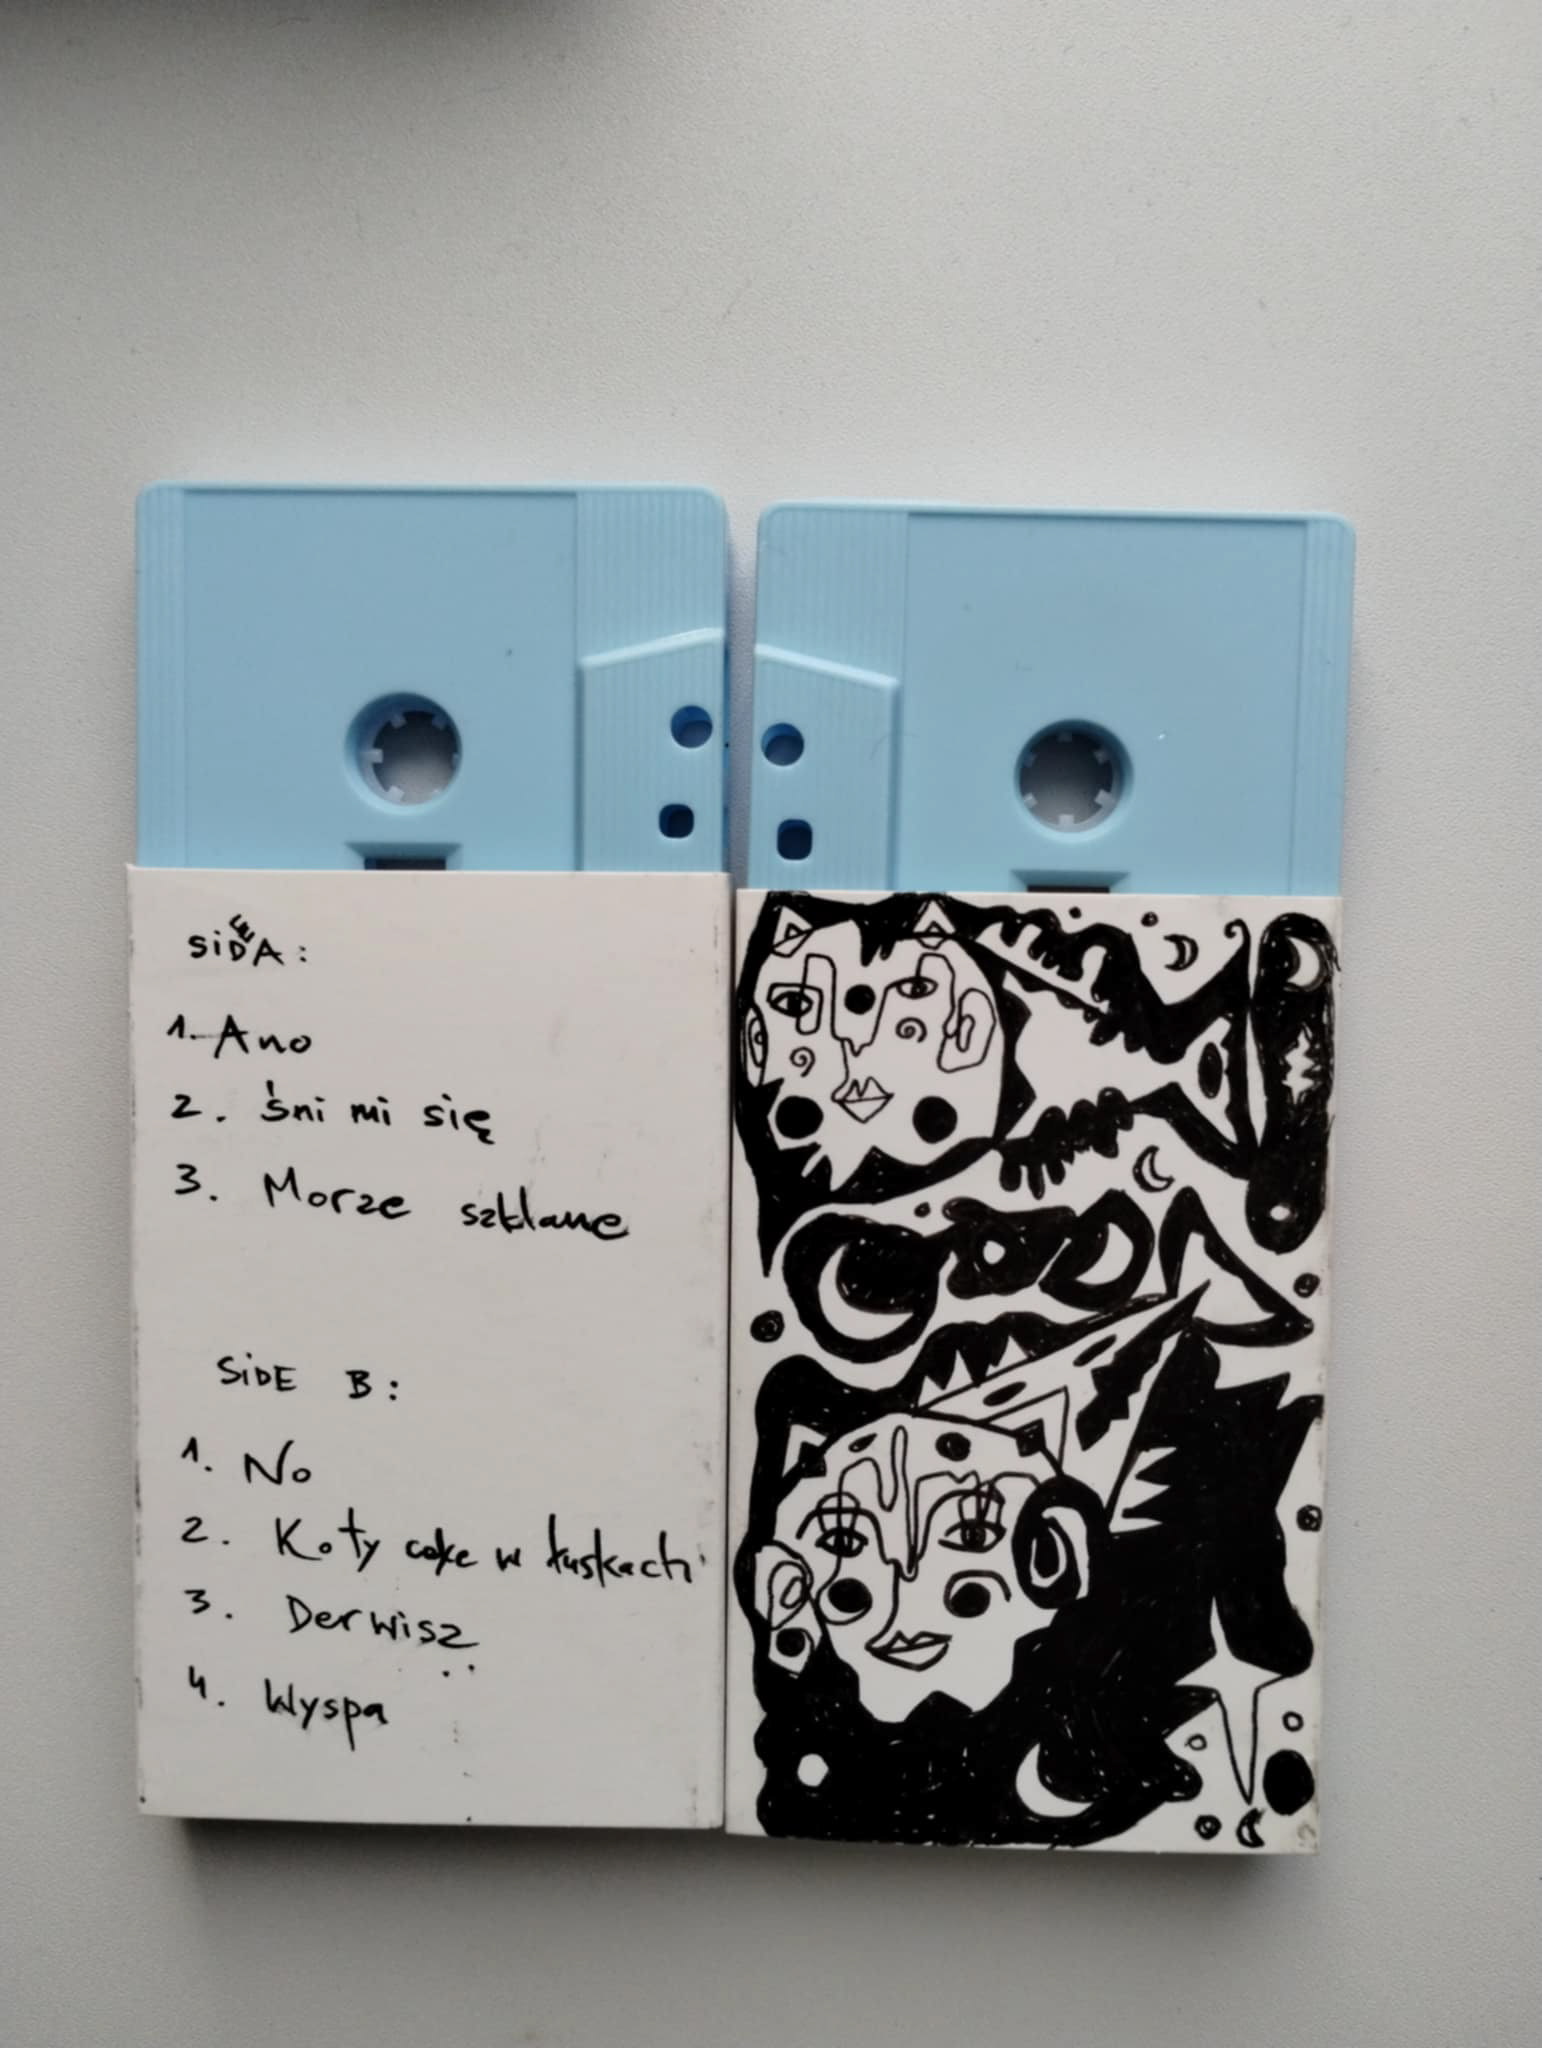 SiDEA:
1. Ano
2. śni mi się
3. Morze szklane
SiDE B:
1. No
2. Koty całe w łuskach
3. Derwisz
4. Wyspa